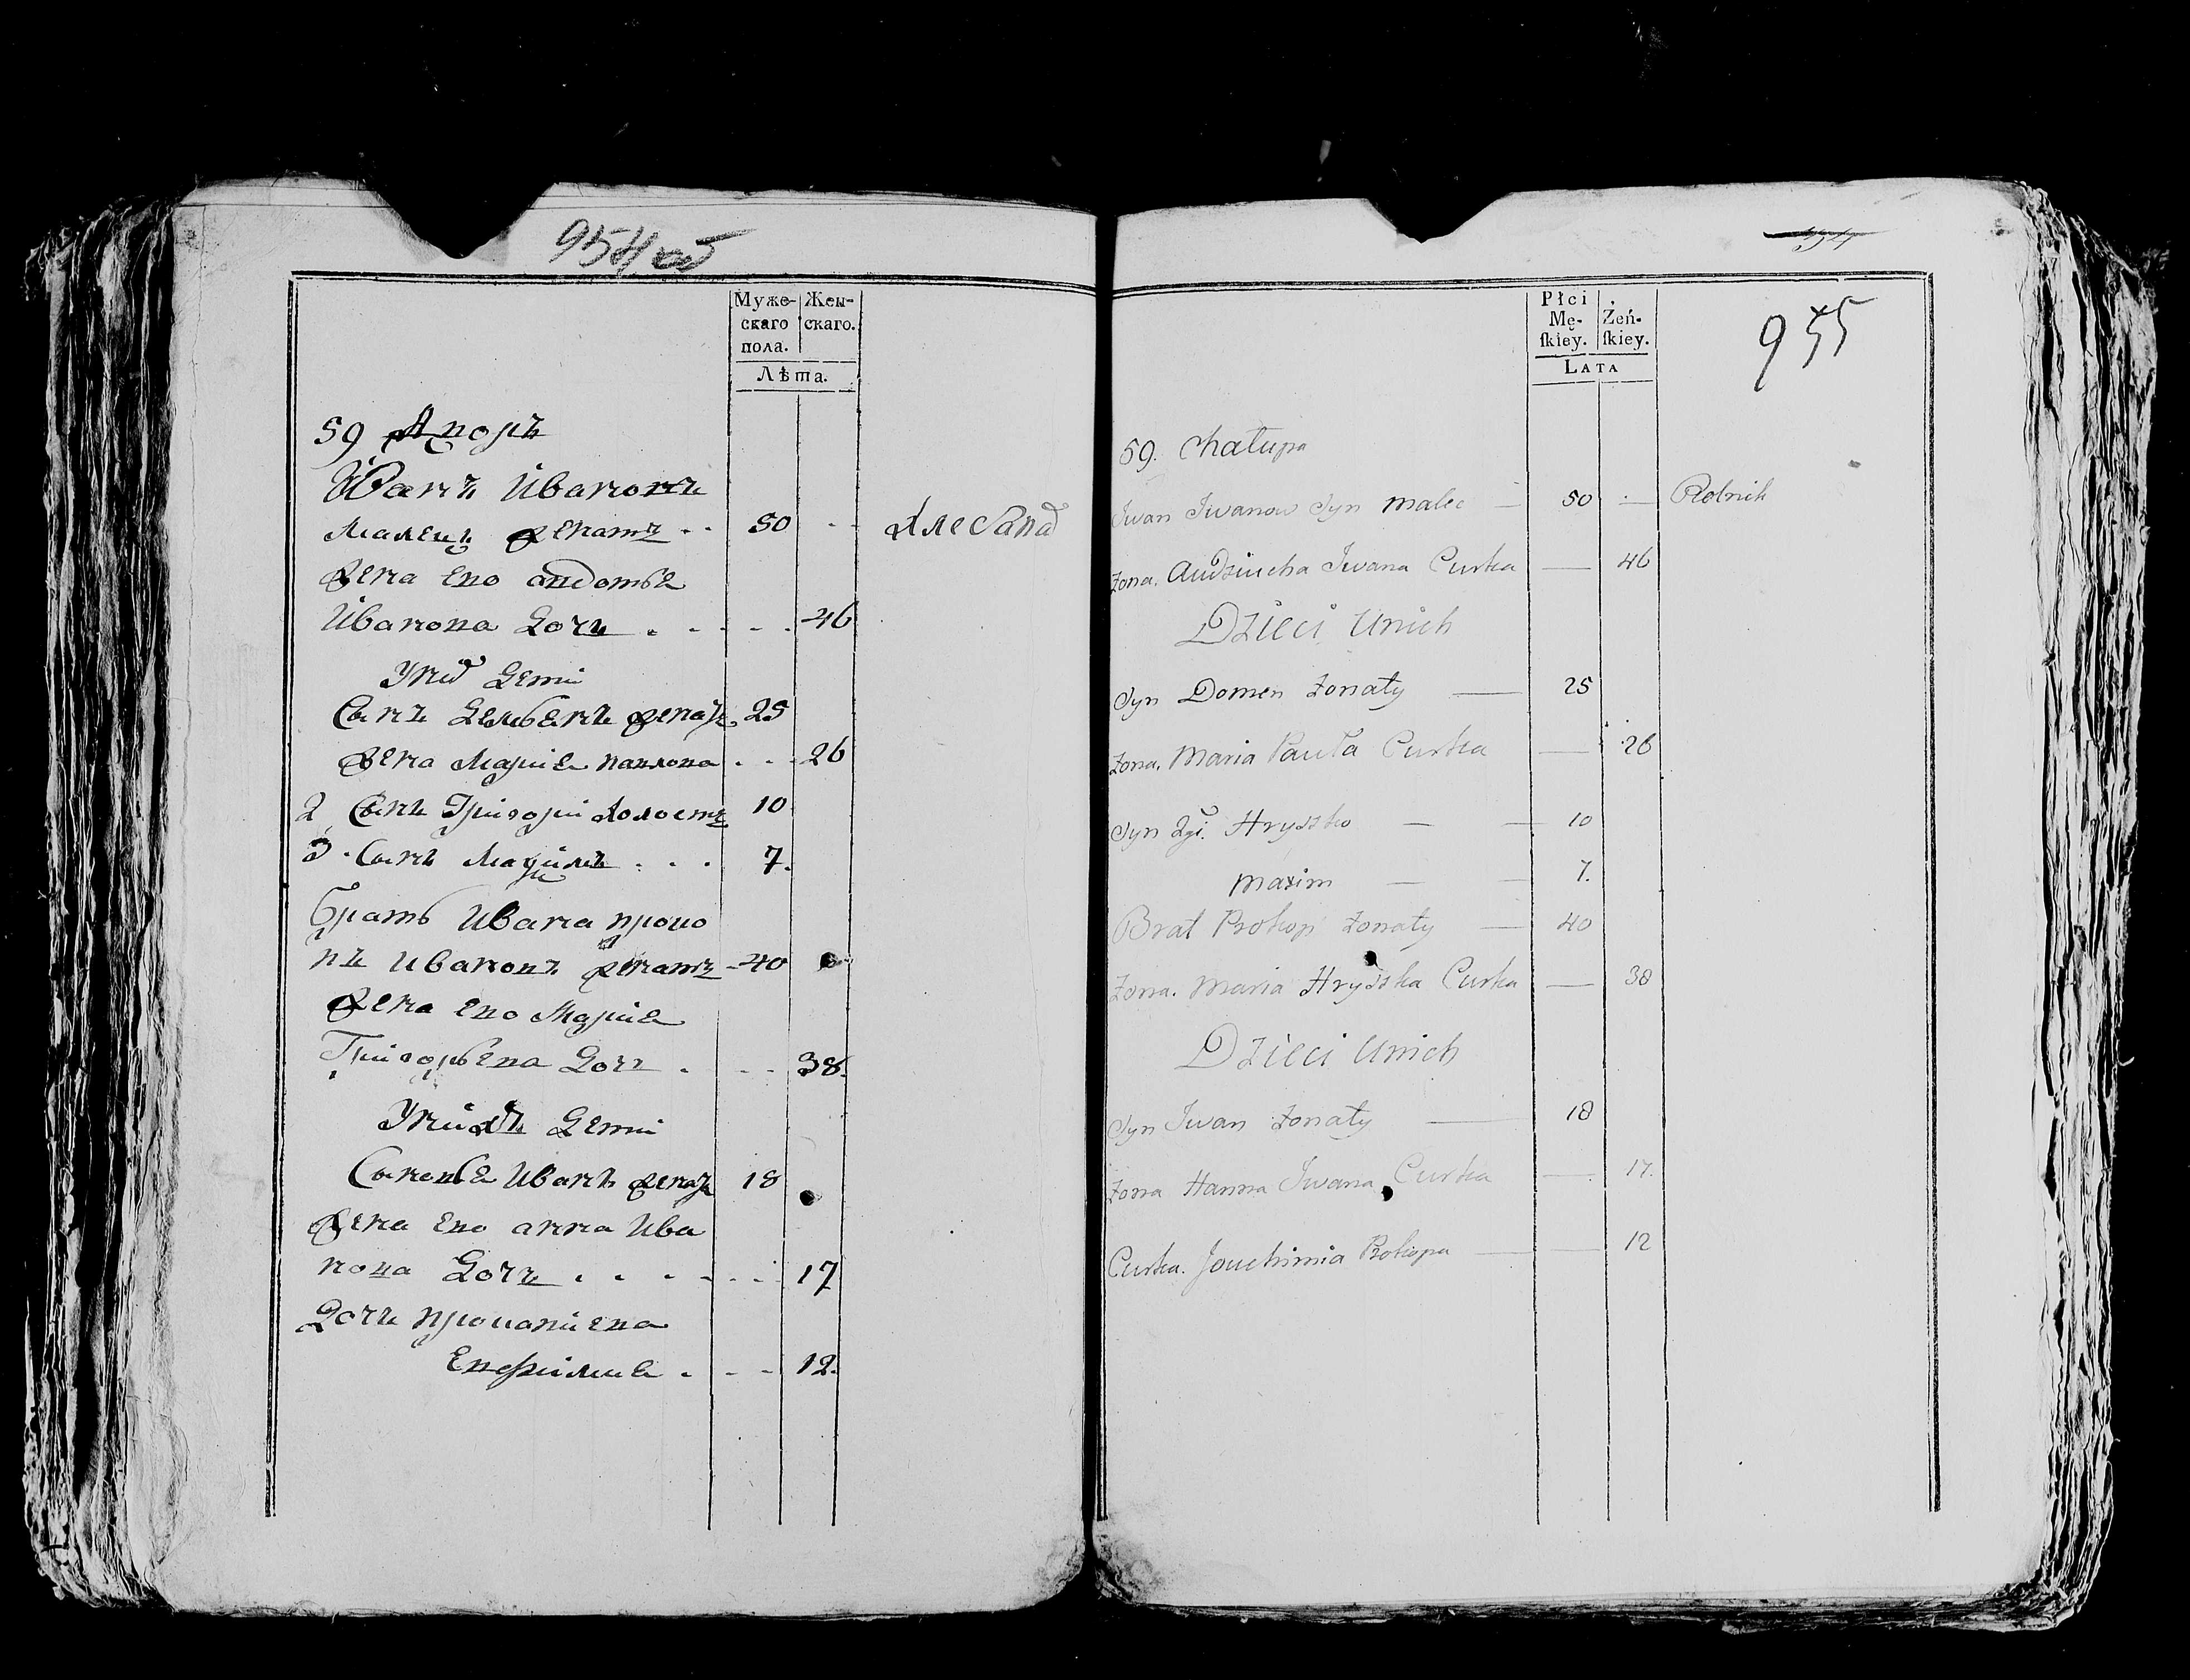 954 об
Муже-
скаго
пола.
Жен-
скаго.
Лѣта.
59 Дворъ
Иванъ Ивановъ
Малецъ женатъ . . 50 - - Хлебопа
жена его Авдотья
Иванова дочь . - - - . 46
У них Дети
Сынъ Демьянъ женатъ 25
жена Мариа павлова . - - 26
2 Сынъ Григори холостъ 10
3 . Сынъ Маѯимъ . . . 7.
братъ Ивана проко
пъ Ивановъ женатъ - 40
жена его Мариа
Григорьева дочь . - - 38.
У нихъ Дети
Сыновья Иванъ женатъ 18
жена его анна Ива
нова дочь . . . - - . - 17
Дочь прокопиева
Евфимиа . - - 12.
954
955
Płci
Mę-
ſkiey.
Żeń-
ſkiey.
LATA
59. Chałupa
Iwan Iwanow Syn Malec — 50 . — Rolnik
Żona. Audziucha Iwana Curka — 46
Dzieci Unich
Syn Domen Żonaty — 25
Żona. Maria Pauła Curka — 26
Syn 2gi. Hryszko — — 10
Maxim — — 7.
Brat Prokop Żonaty — 40
Żona. Maria Hryszka Curka — 38
Dzieci Unich
Syn Iwan Żonaty — 18
Żona Hanna Iwana Curka — 17.
Curka. Jouchimia Prokopa — — 12